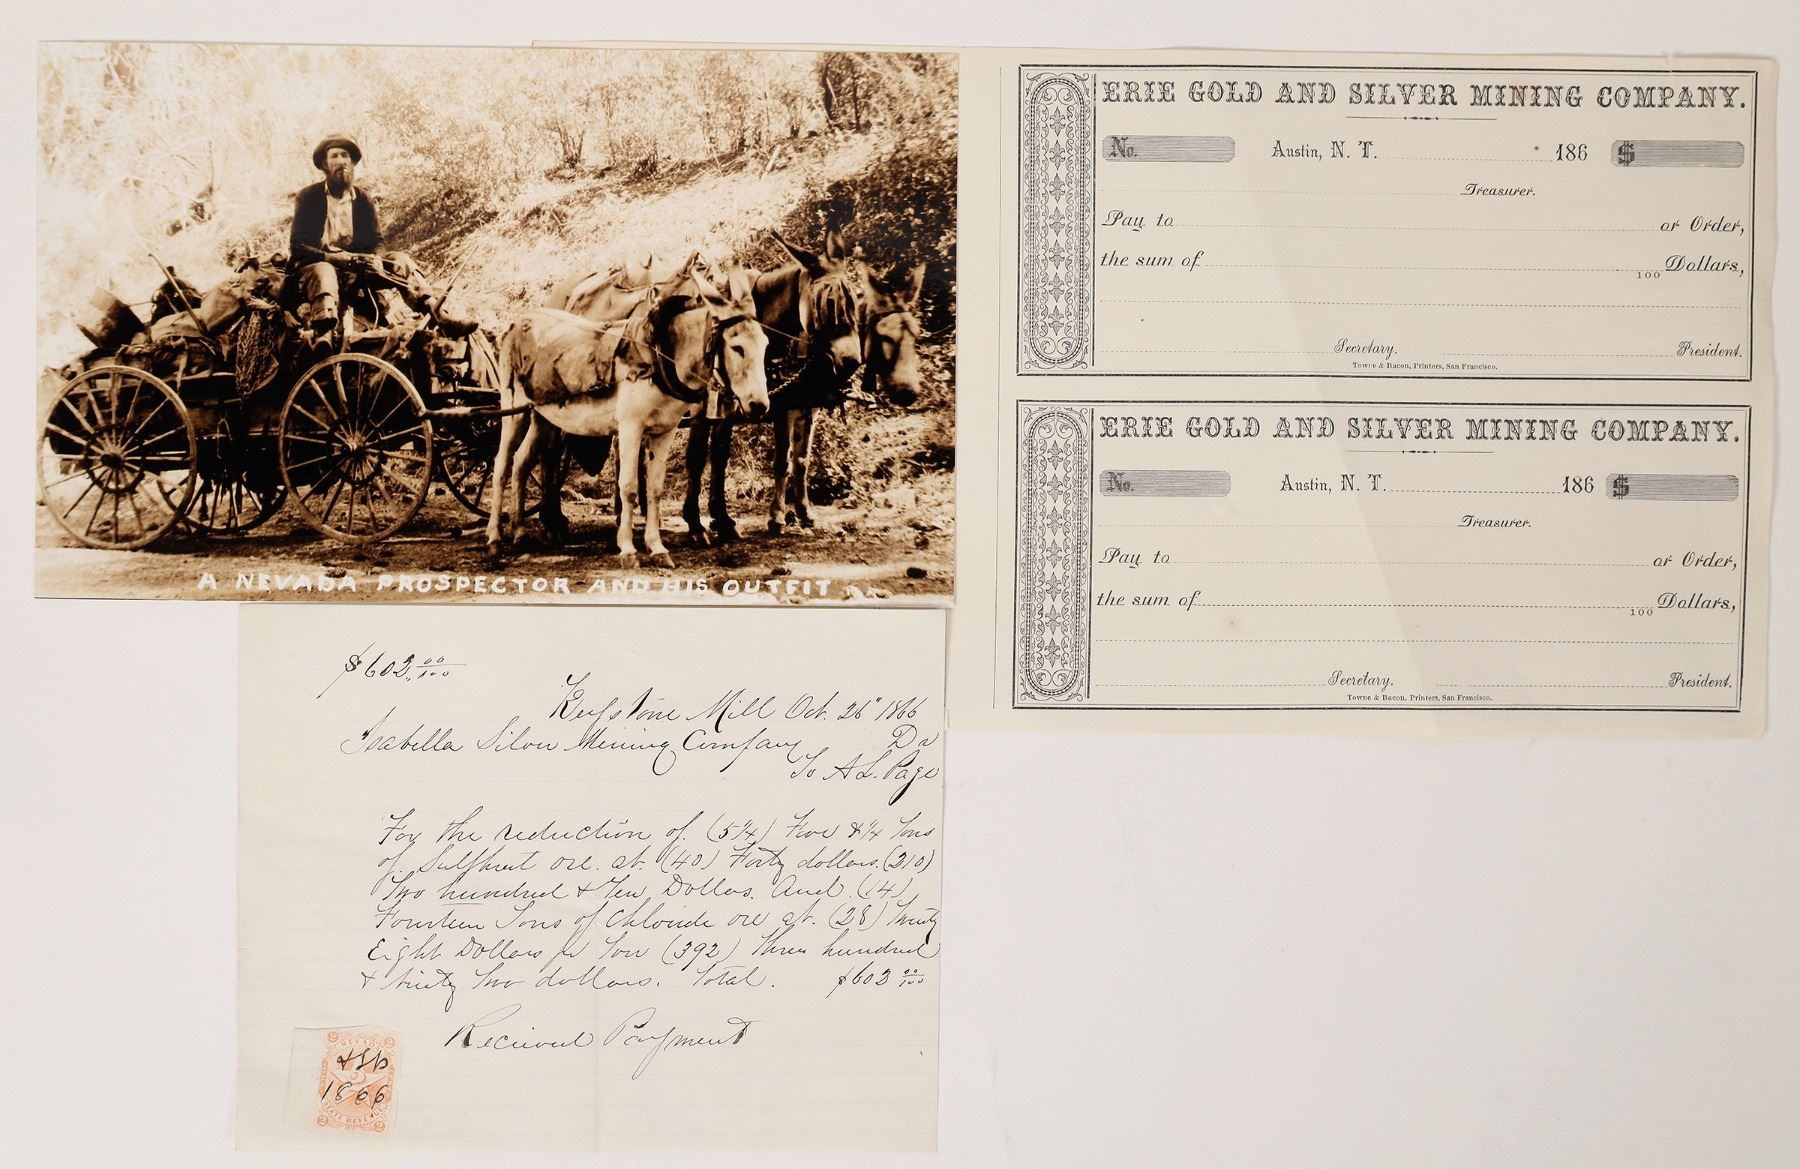 A NEVADA PROSPECTOR AND HIS OUTFIT
ERIE GOLD AND SILVER MINING COMPANY.
No. Austin, N. T. 186 $
Treasurer.
Pay to or Order,
the sum of 100 Dollars,
Secretary. President.
Towne & Bacon, Printers, San Francisco.
ERIE GOLD AND SILVER MINING COMPANY.
No. Austin, N. T. 186 $
Treasurer.
Pay to or Order,
the sum of 100 Dollars,
Secretary. President.
Towne & Bacon, Printers, San Francisco.
$602 00/100
Keystone Mill Oct. 26" 1866
Isabella Silver Mining Company Dr
To A L. Page
For the reduction of (5 1/4) Five & 1/4 Tons
of Sulphuret ore at (40) Forty dollars. (210)
Two hundred & Ten Dollars. And (14)
Fourteen Tons of Chloride ore at (28) Twenty
Eight Dollars pr Ton (392) Three hundred
& ninety Two dollars. Total. $602 00/100
Recieved Payment
2 NEVADA 2
ALP
1866
2 STATE REVENUE 2